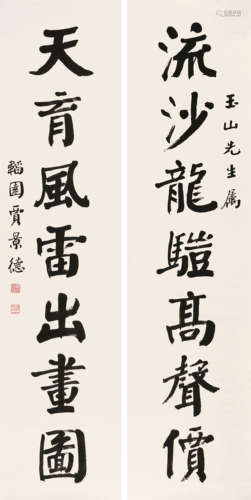 玉山先生屬
流沙龍𩥇高聲價
天育風雷出畫圖
韜園賈景德